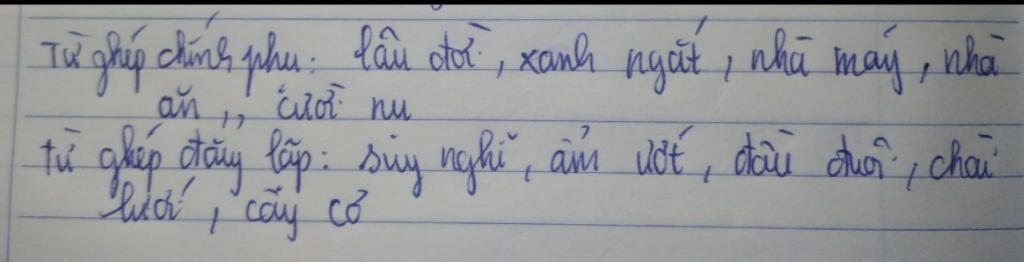 Từ ghép chính phụ: lâu đời, xanh ngắt, nhà máy, nhà
ăn,, cười nụ
từ ghép đẳng lập: suy nghĩ, ẩm ướt, đầu đuôi, chài
lưới, cây cỏ